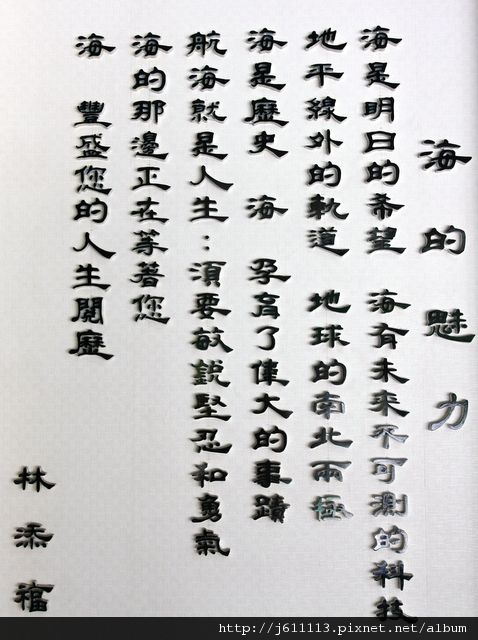 海的魅力
海是明日的希望 海有未來不可測的科技
地平線外的軌道 地球的南北兩極
海是歷史 海 孕育了偉大的事蹟
航海就是人生：須要敏銳堅忍和勇氣
海的那邊正在等著您
海 豐盛您的人生閱歷
林添福
http://j611113.pixnet.net/album